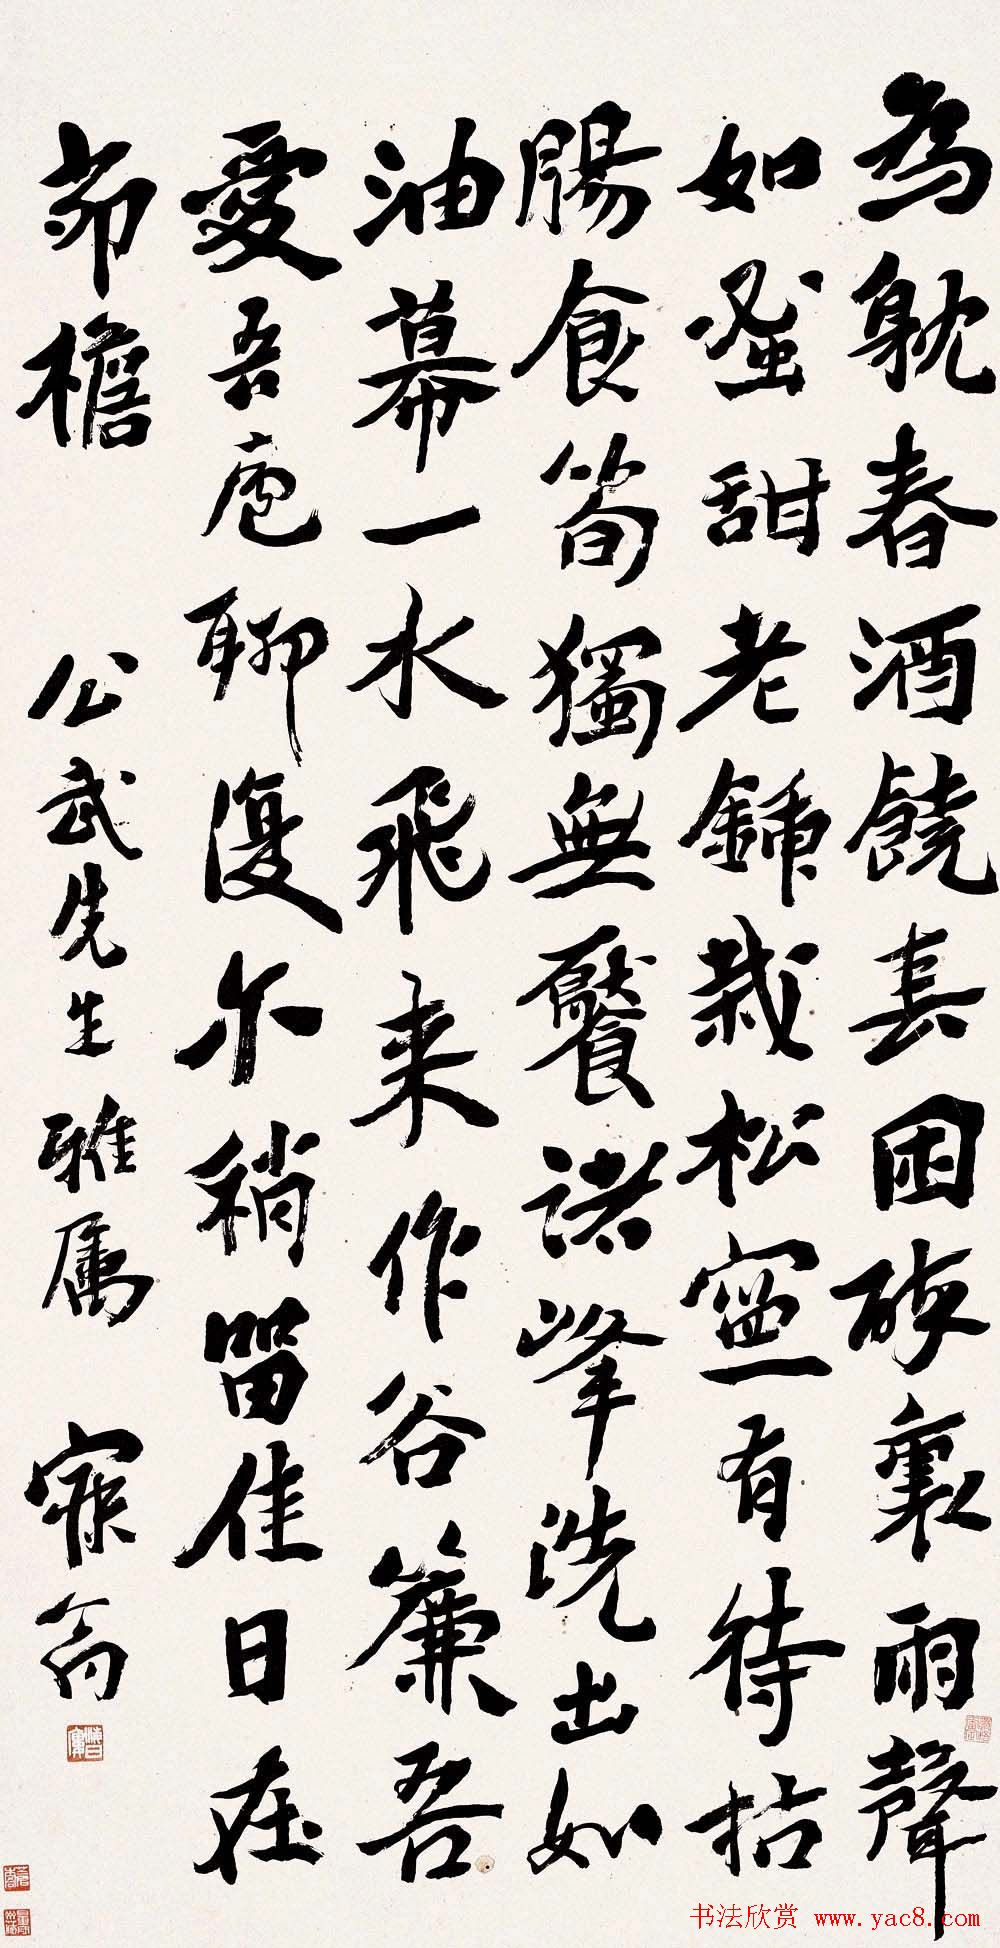 為躭春酒饒春困醉裏雨聲
如蜜甜老鍾栽松寧有待枯
腸食筍獨無饜諸峯洗出如
油幕一水飛来作谷簾吾
愛吾庖聊復尔稍留佳日在
茆檐
公武先生雅属
寐翁
书法欣赏 www.yac8.com